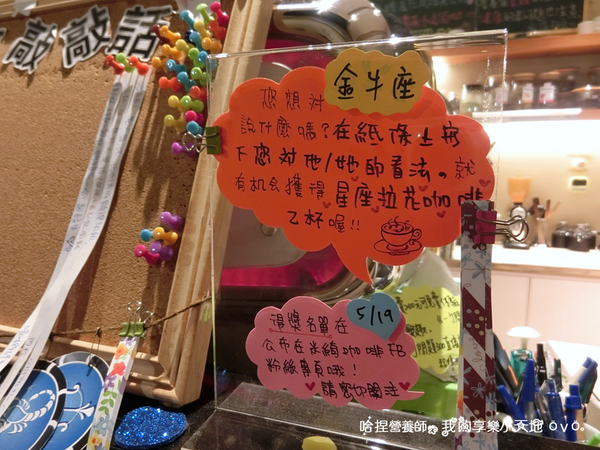 敲敲話
金牛座
您想對
說什麼嗎?在紙條上寫
下您對他/她的看法。就
有机会獲得星座拉花咖啡
乙杯喔!!
5/19
得獎名單在
公布在米綺咖啡FB
粉絲專頁哦!
請密切關注
哈捏營養師。我的享樂小天地 ovo。